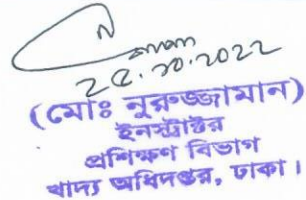 ২৫.১০.২০২২
(মোঃ নুরুজ্জামান)
ইনস্ট্রাক্টর
প্রশিক্ষণ বিভাগ
খাদ্য অধিদপ্তর, ঢাকা।